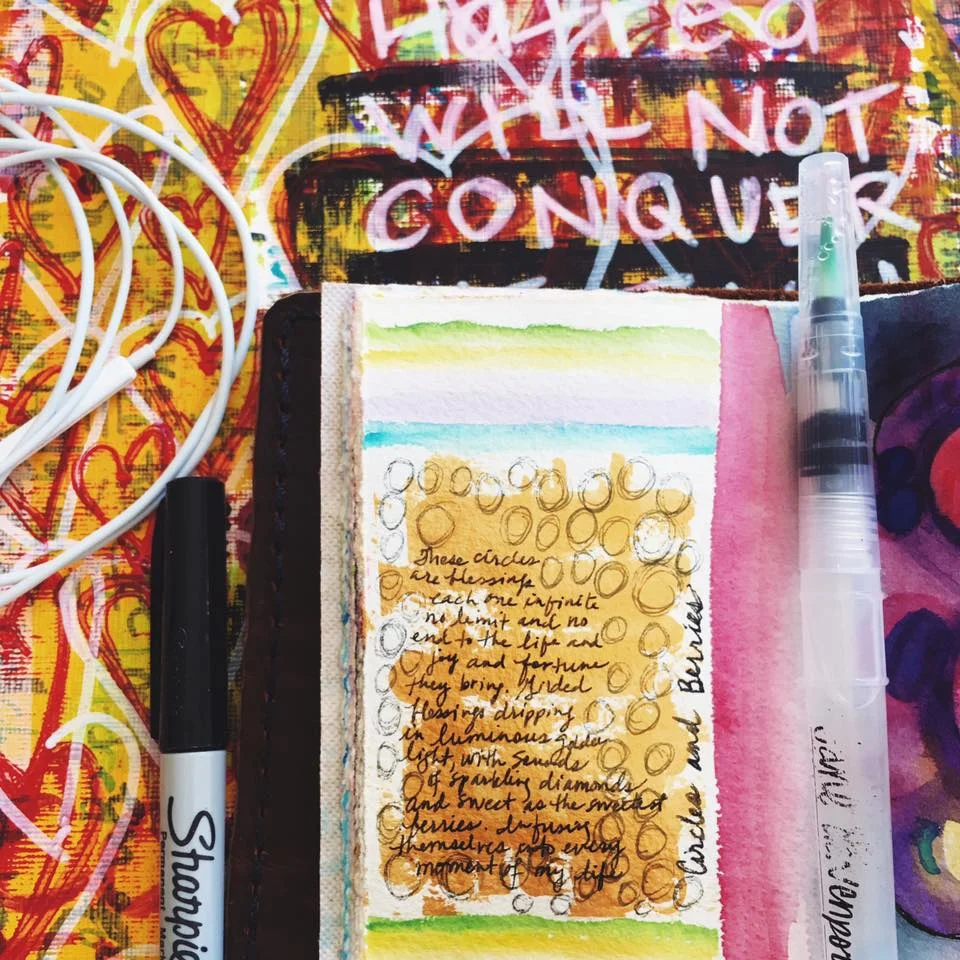 Hatred
WILL NOT
CONQUER
These circles
are blessings
each one infinite
no limit and no
end to the life and
joy and fortune
they bring. Gilded
blessings dripping
in luminous golden
light, with sounds
of sparkling diamonds
and sweet as the sweetest
berries. Infusing
themselves into every
moment of my life
Circles and Berries
Sharpie
Permanent Mar